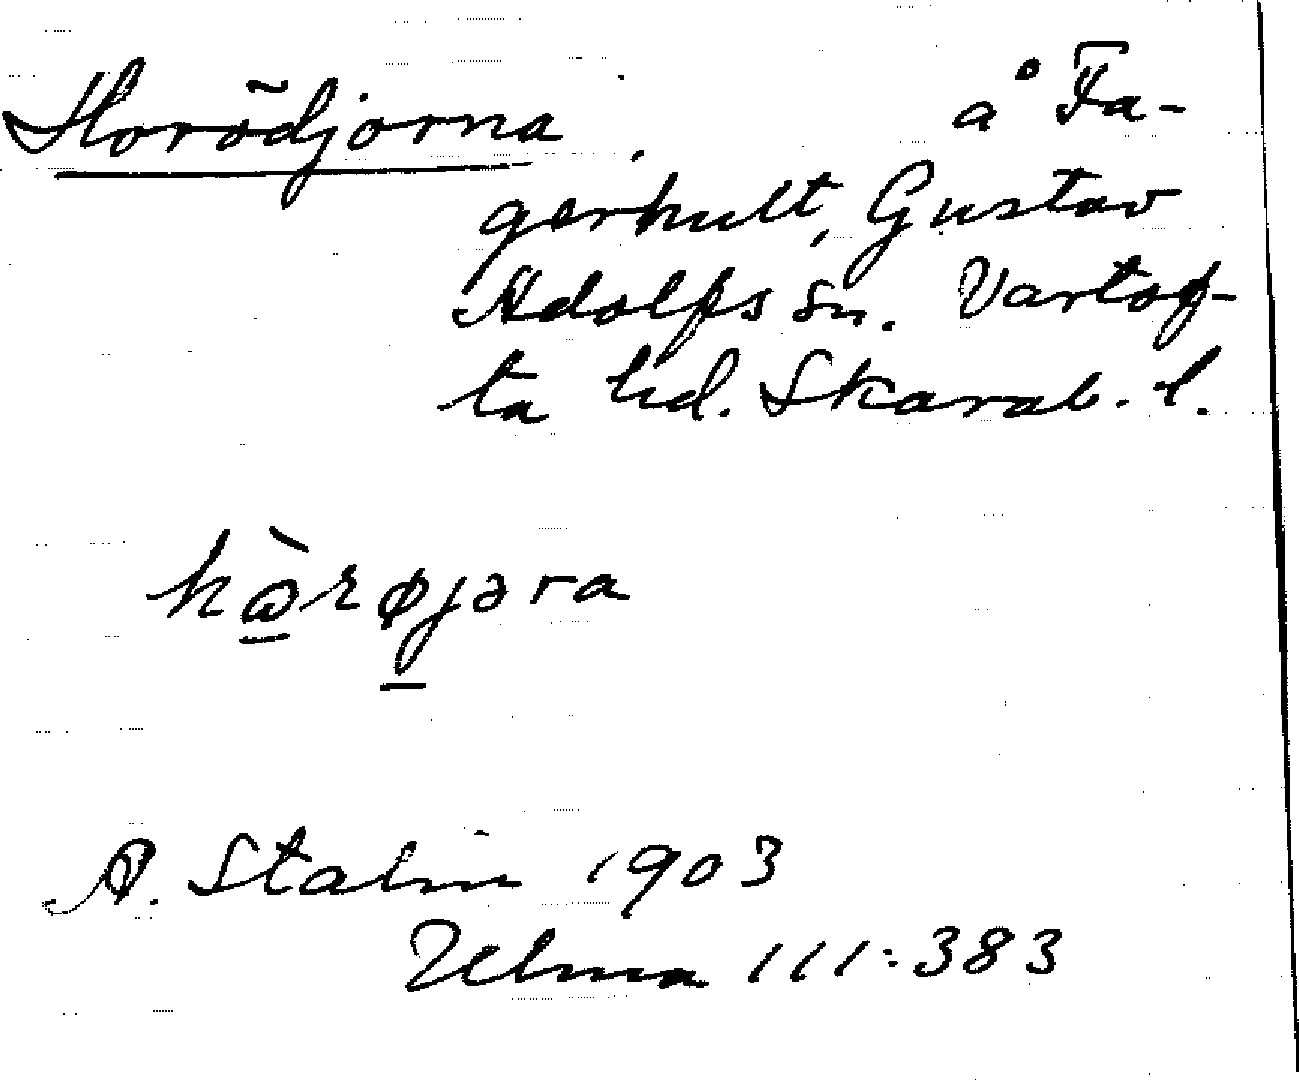 Horödjorna å Fa-
gerhult, Gustav
Adolfs sn. Vartof-
ta hd. Skarab. l.
hɷ̀røjəra
A. Stalin 1903
Uelma 111:383